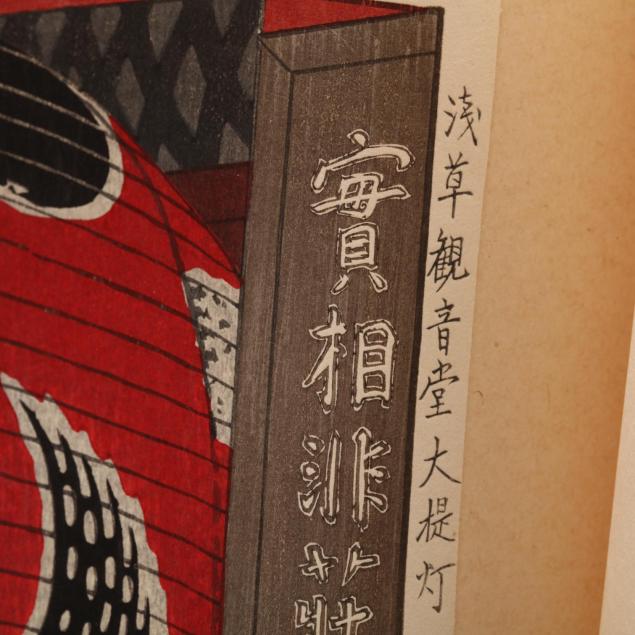 淺草観音堂大提灯
實相非